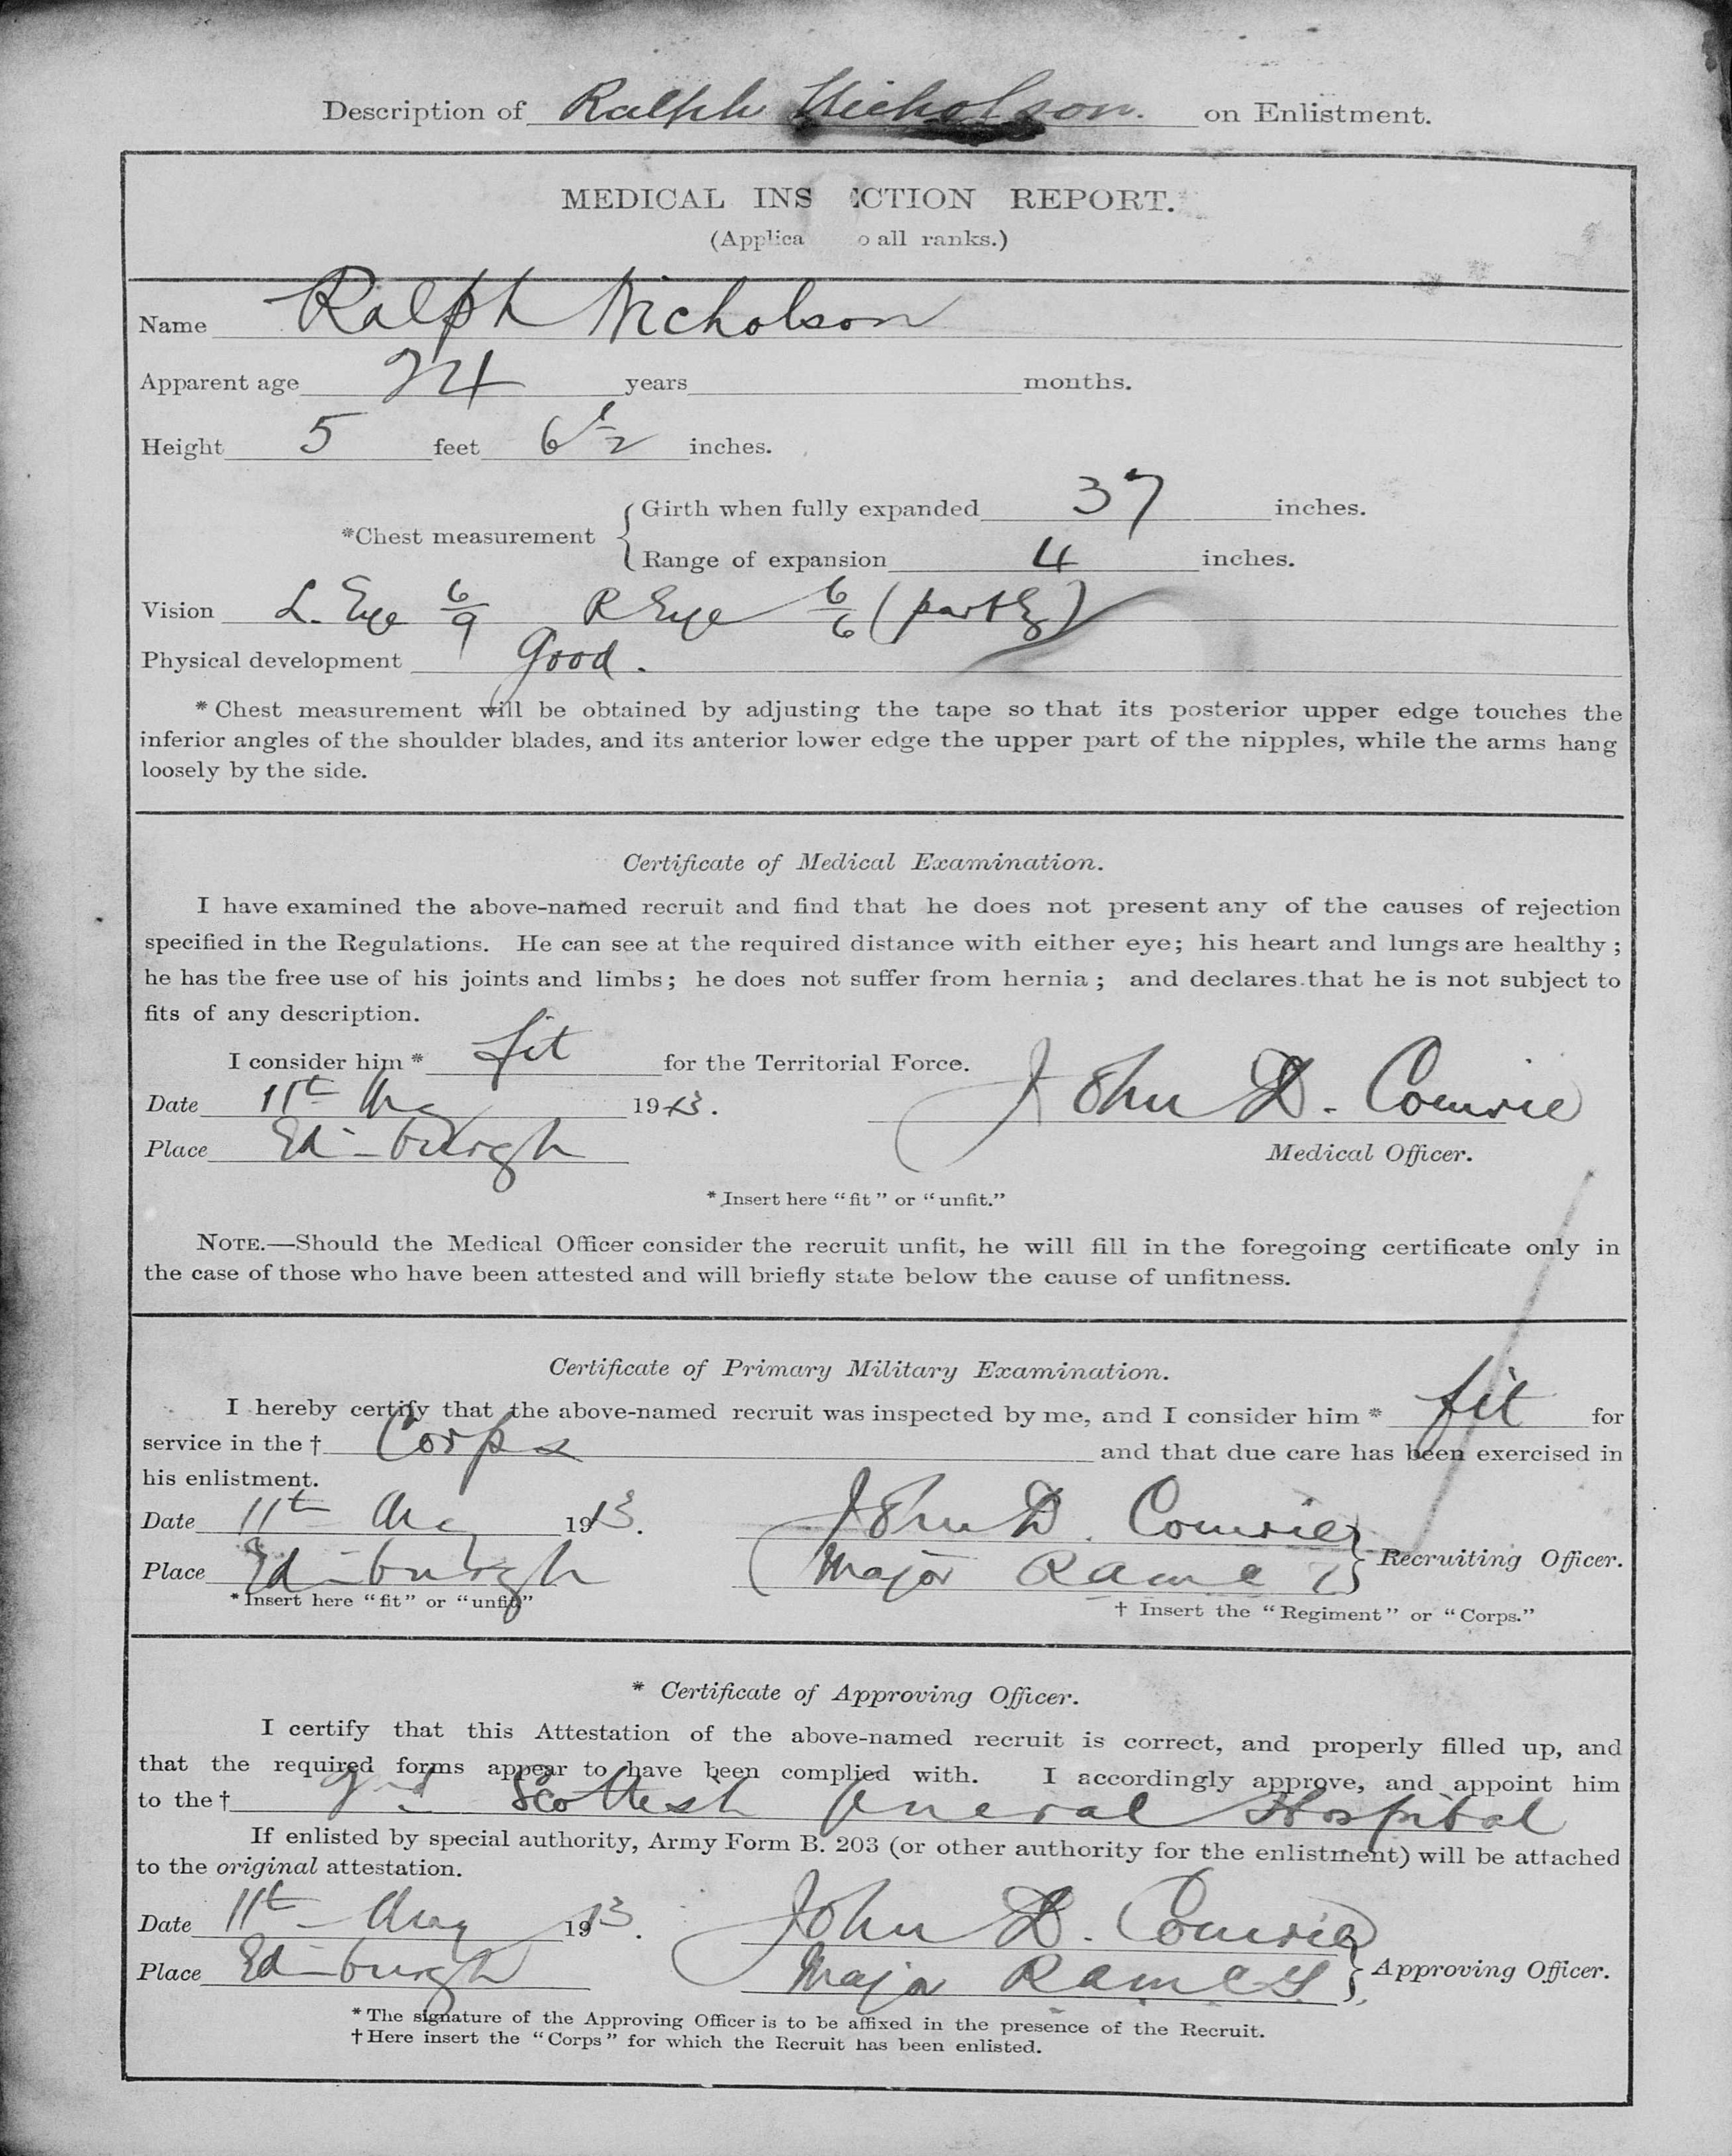 Description of Ralph Nicholson. on Enlistment.
MEDICAL INS CTION REPORT.
(Applica o all ranks.)
Name Ralph Nicholson
Apparent age 24 years months.
Height 5 feet 6 1/2 inches.
*Chest measurement { Girth when fully expanded 37 inches.
Range of expansion 4 inches.
Vision L. Eye 6/9 R Eye 6/6 (partly)
Physical development Good.
* Chest measurement will be obtained by adjusting the tape so that its posterior upper edge touches the
inferior angles of the shoulder blades, and its anterior lower edge the upper part of the nipples, while the arms hang
loosely by the side.
Certificate of Medical Examination.
I have examined the above-named recruit and find that he does not present any of the causes of rejection
specified in the Regulations. He can see at the required distance with either eye; his heart and lungs are healthy;
he has the free use of his joints and limbs; he does not suffer from hernia; and declares that he is not subject to
fits of any description.
I consider him * fit for the Territorial Force.
Date 11th Aug 1913. John D. Comrie
Place Edinburgh Medical Officer.
* Insert here "fit" or "unfit."
NOTE.—Should the Medical Officer consider the recruit unfit, he will fill in the foregoing certificate only in
the case of those who have been attested and will briefly state below the cause of unfitness.
Certificate of Primary Military Examination.
I hereby certify that the above-named recruit was inspected by me, and I consider him * fit for
service in the † Corps and that due care has been exercised in
his enlistment.
Date 11th Aug 1913. John D. Comrie
Place Edinburgh Major } Recruiting Officer.
* Insert here "fit" or "unfit" † Insert the "Regiment" or "Corps."
* Certificate of Approving Officer.
I certify that this Attestation of the above-named recruit is correct, and properly filled up, and
that the required forms appear to have been complied with. I accordingly approve, and appoint him
to the † Scottish General Hospital
If enlisted by special authority, Army Form B. 203 (or other authority for the enlistment) will be attached
to the original attestation.
Date 11th Aug 1913. John D. Comrie
Place Edinburgh Major } Approving Officer.
* The signature of the Approving Officer is to be affixed in the presence of the Recruit.
† Here insert the "Corps" for which the Recruit has been enlisted.